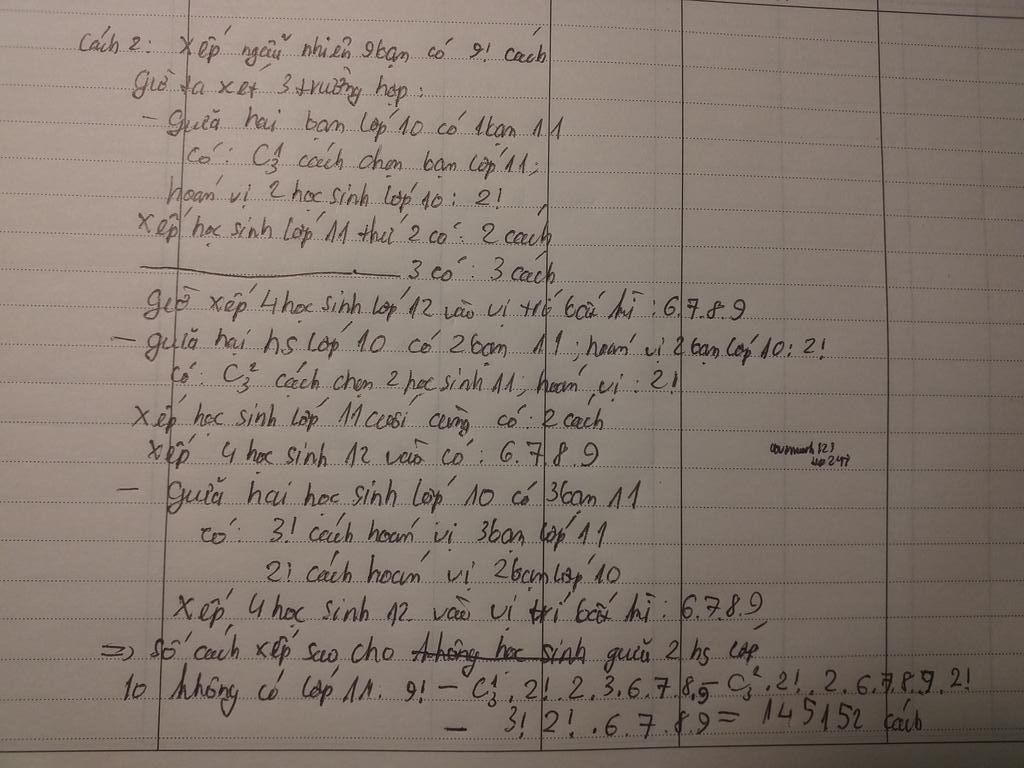 Cách 2: Xếp ngẫu nhiên 9 bạn có 9! cách
Giờ ta xét 3 trường hợp:
- Giữa hai bạn lớp 10 có 1 bạn 11
có: C₃¹ cách chọn bạn lớp 11;
hoán vị 2 học sinh lớp 10: 2!
Xếp học sinh lớp 11 thứ 2 có: 2 cách
3 có: 3 cách
Giờ xếp 4 học sinh lớp 12 vào vị trí bất kì: 6.7.8.9
- giữa hai hs lớp 10 có 2 bạn 11; hoán vị 2 bạn lớp 10: 2!
Có: C₃² cách chọn 2 học sinh 11; hoán vị: 2!
Xếp học sinh lớp 11 cuối cùng có: 2 cách
Xếp 4 học sinh 12 vào có: 6.7.8.9
- Giữa hai học sinh lớp 10 có 3 bạn 11
có: 3! cách hoán vị 3 bạn lớp 11
2! cách hoán vị 2 bạn lớp 10
Xếp 4 học sinh 12 vào vị trí bất kì: 6.7.8.9
=> Số cách xếp sao cho không học sinh giữa 2 hs lớp
10 không có lớp 11: 9! - C₃¹.2!.2.3.6.7.8.9 - C₃².2!.2.6.7.8.9.2!
- 3! 2!.6.7.8.9 = 145152 cách